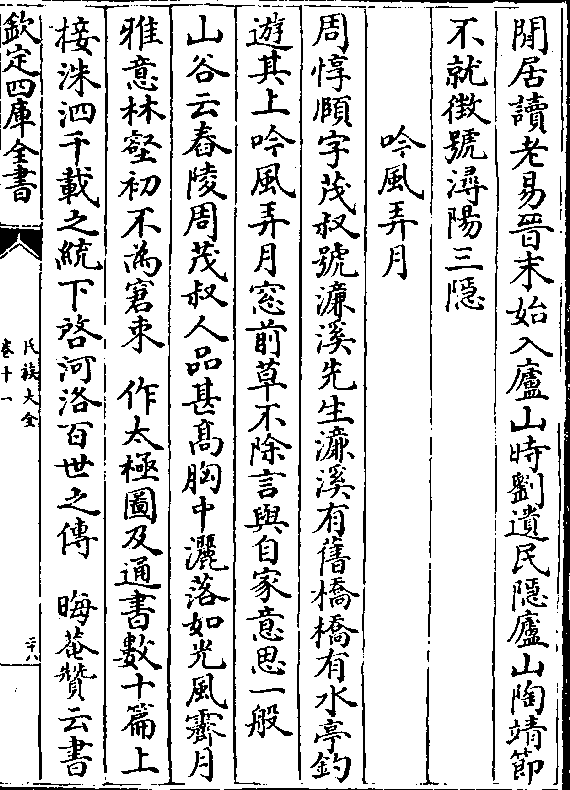 閒居讀老易晉末始入廬山時劉遺民隱廬山陶靖節
不就徴號潯陽三隱
吟風弄月
周惇頥字茂叔號濓溪先生濓溪有舊橋橋有水亭釣
遊其上吟風弄月窓前草不除言與自家意思一般
山谷云舂陵周茂叔人品甚髙胸中灑落如光風霽月
雅意林壑初不為窘束 作太極圖及通書數十篇上
接洙泗千載之統下啓河洛百世之傳 晦菴贊云書
欽定四庫全書
氏族大全
卷十一
二十八